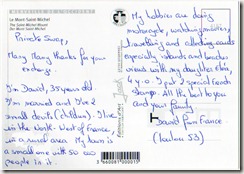 Le Mont Saint Michel
The Saint Michel Mount
Der Mont Saint Michel
Private Swap,
Many Many thanks for your
exchange.
I'm David, 35 years old
I'm married and I've 2
small devils (children). I live
in the North-West of France,
in a rural area. My town is
a small one with 50 000
people in it.
My hobbies are doing
motorcycle, watching movies,
travelling and collecting cards
especially islands and beaches
views with my daughter
4 y.o. I put 2 special French
Stamps. All the best to you
and your family
David from France
3 660081 000015